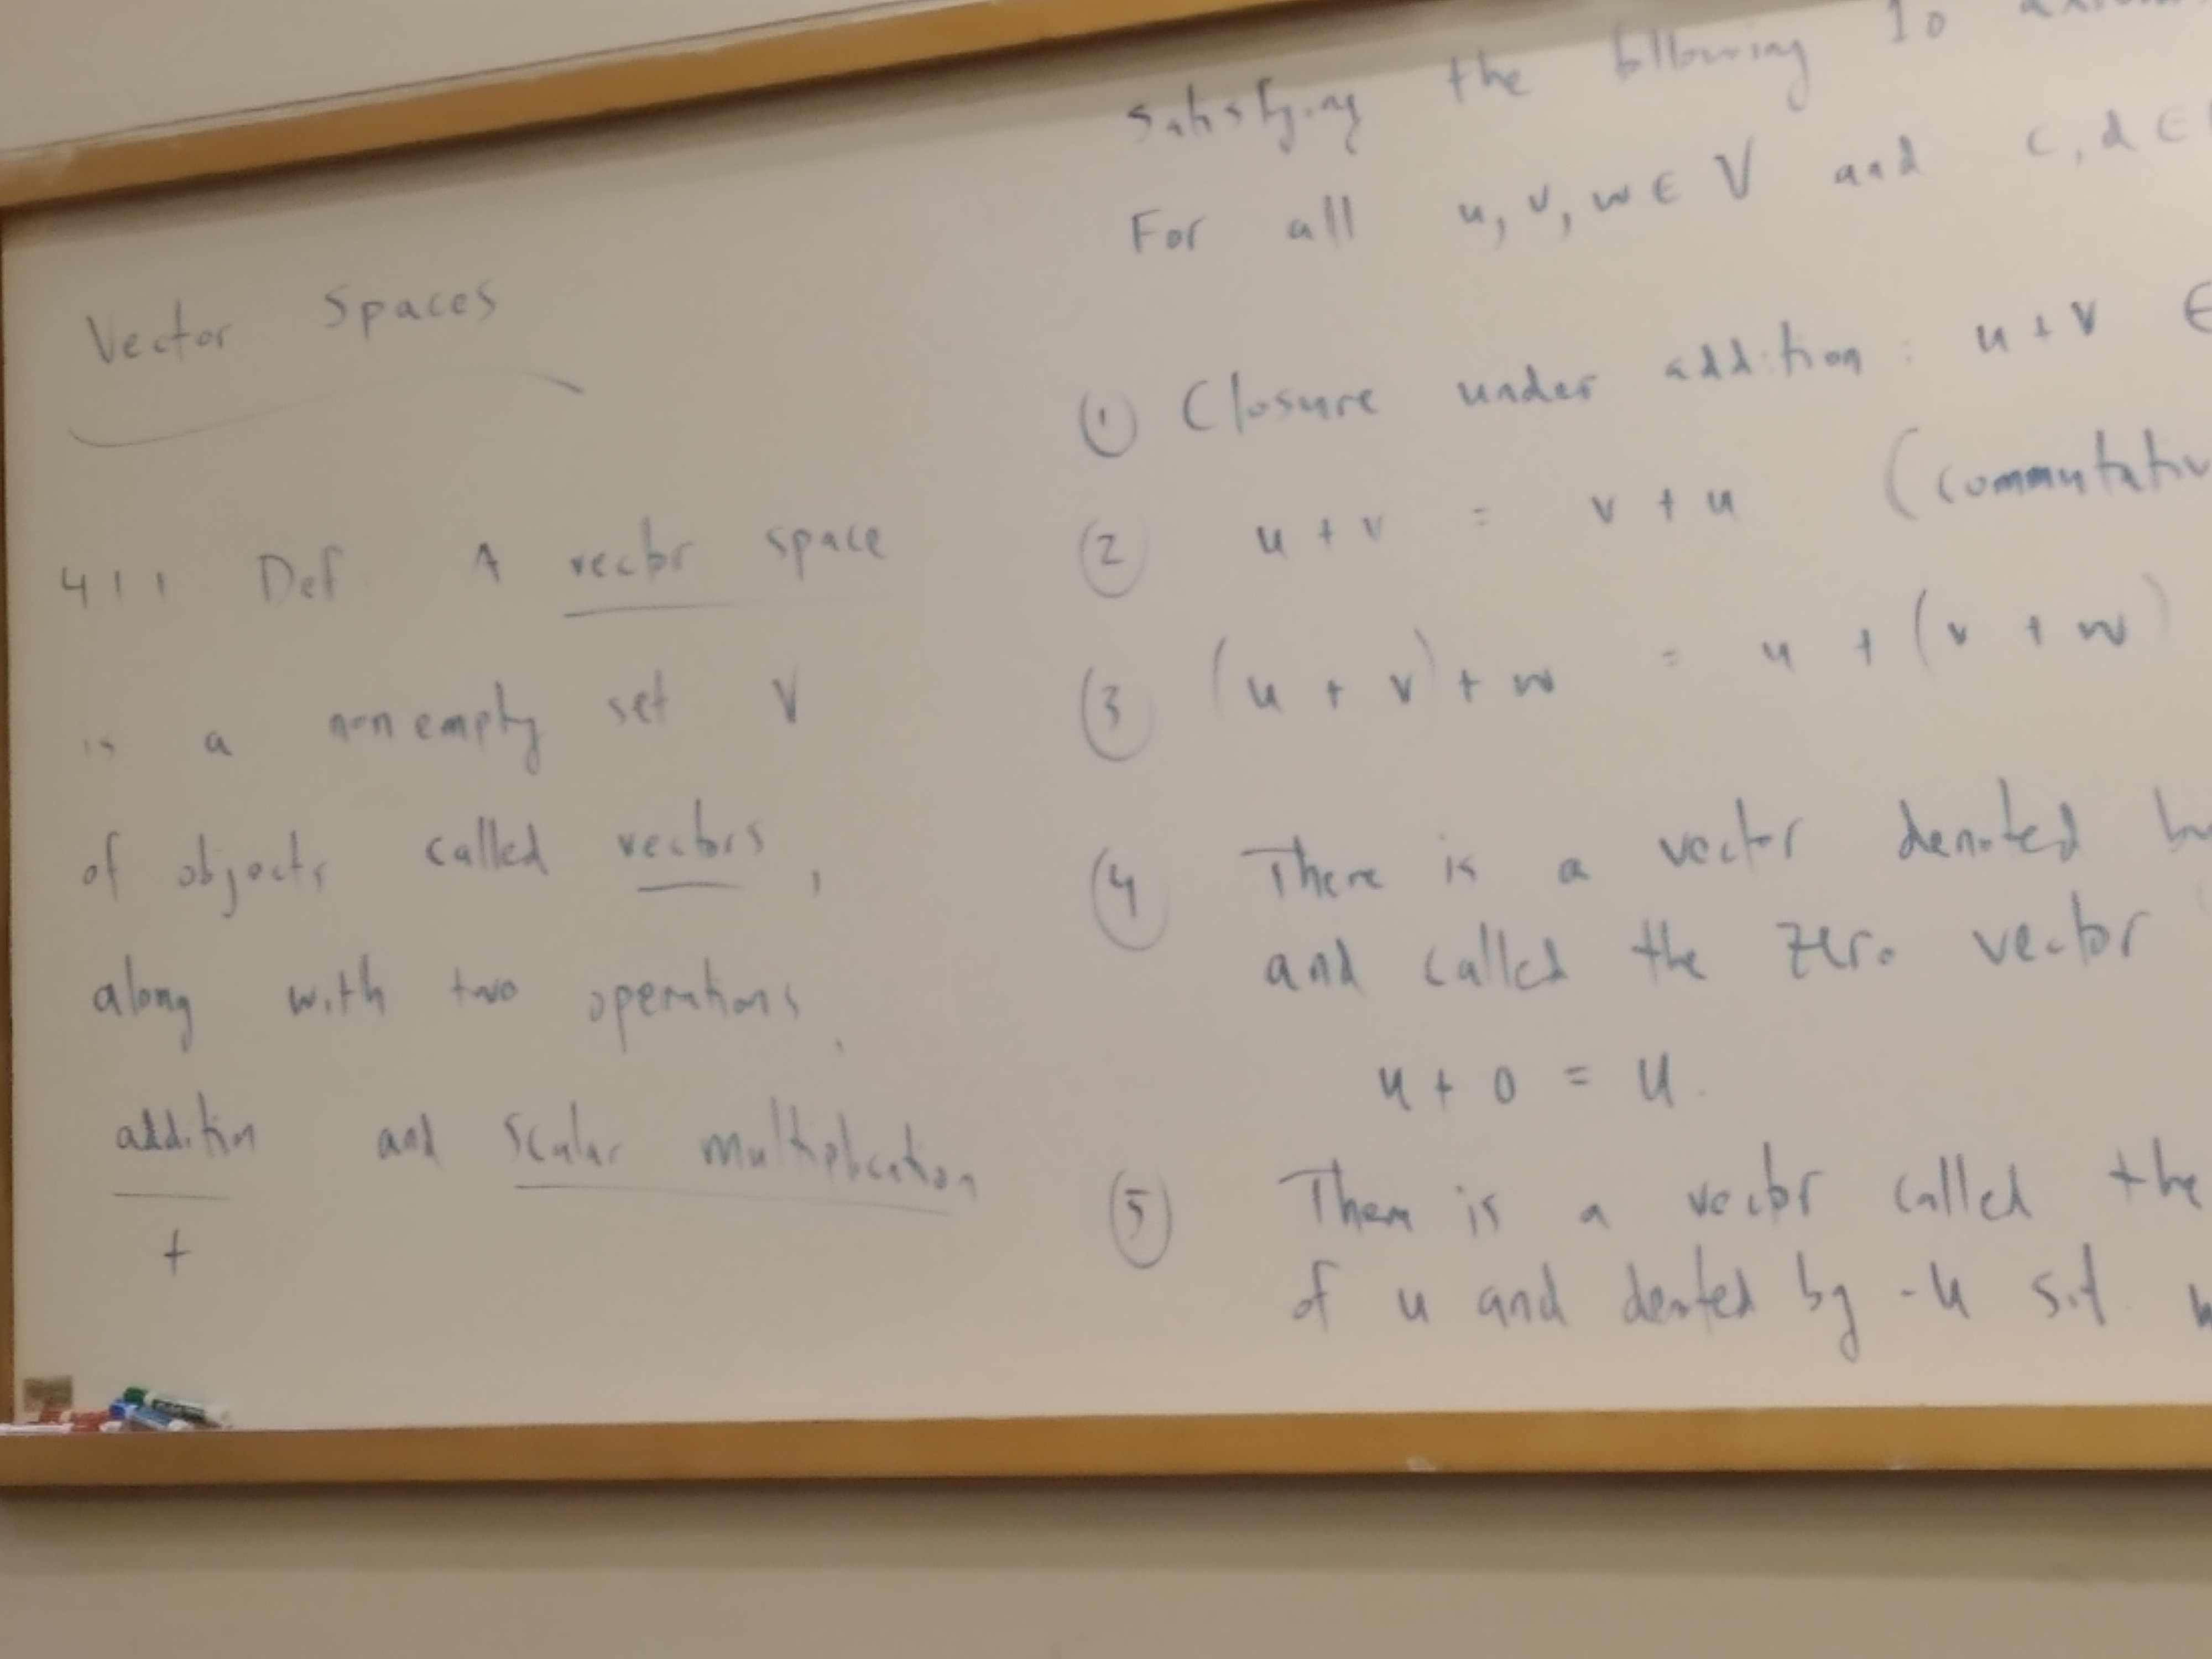 Vector Spaces
4.1.1 Def. A vector space
is a nonempty set V
of objects called vectors,
along with two operations,
addition and scalar multiplication
+
satisfying the following 10
For all u, v, w ∈ V and c, d ∈
① Closure under addition : u + v ∈
② u + v = v + u (commutativ
③ (u + v) + w = u + (v + w)
④ There is a vector denoted
and called the zero vector
u + 0 = u.
⑤ There is a vector called the
of u and denoted by -u s.t.